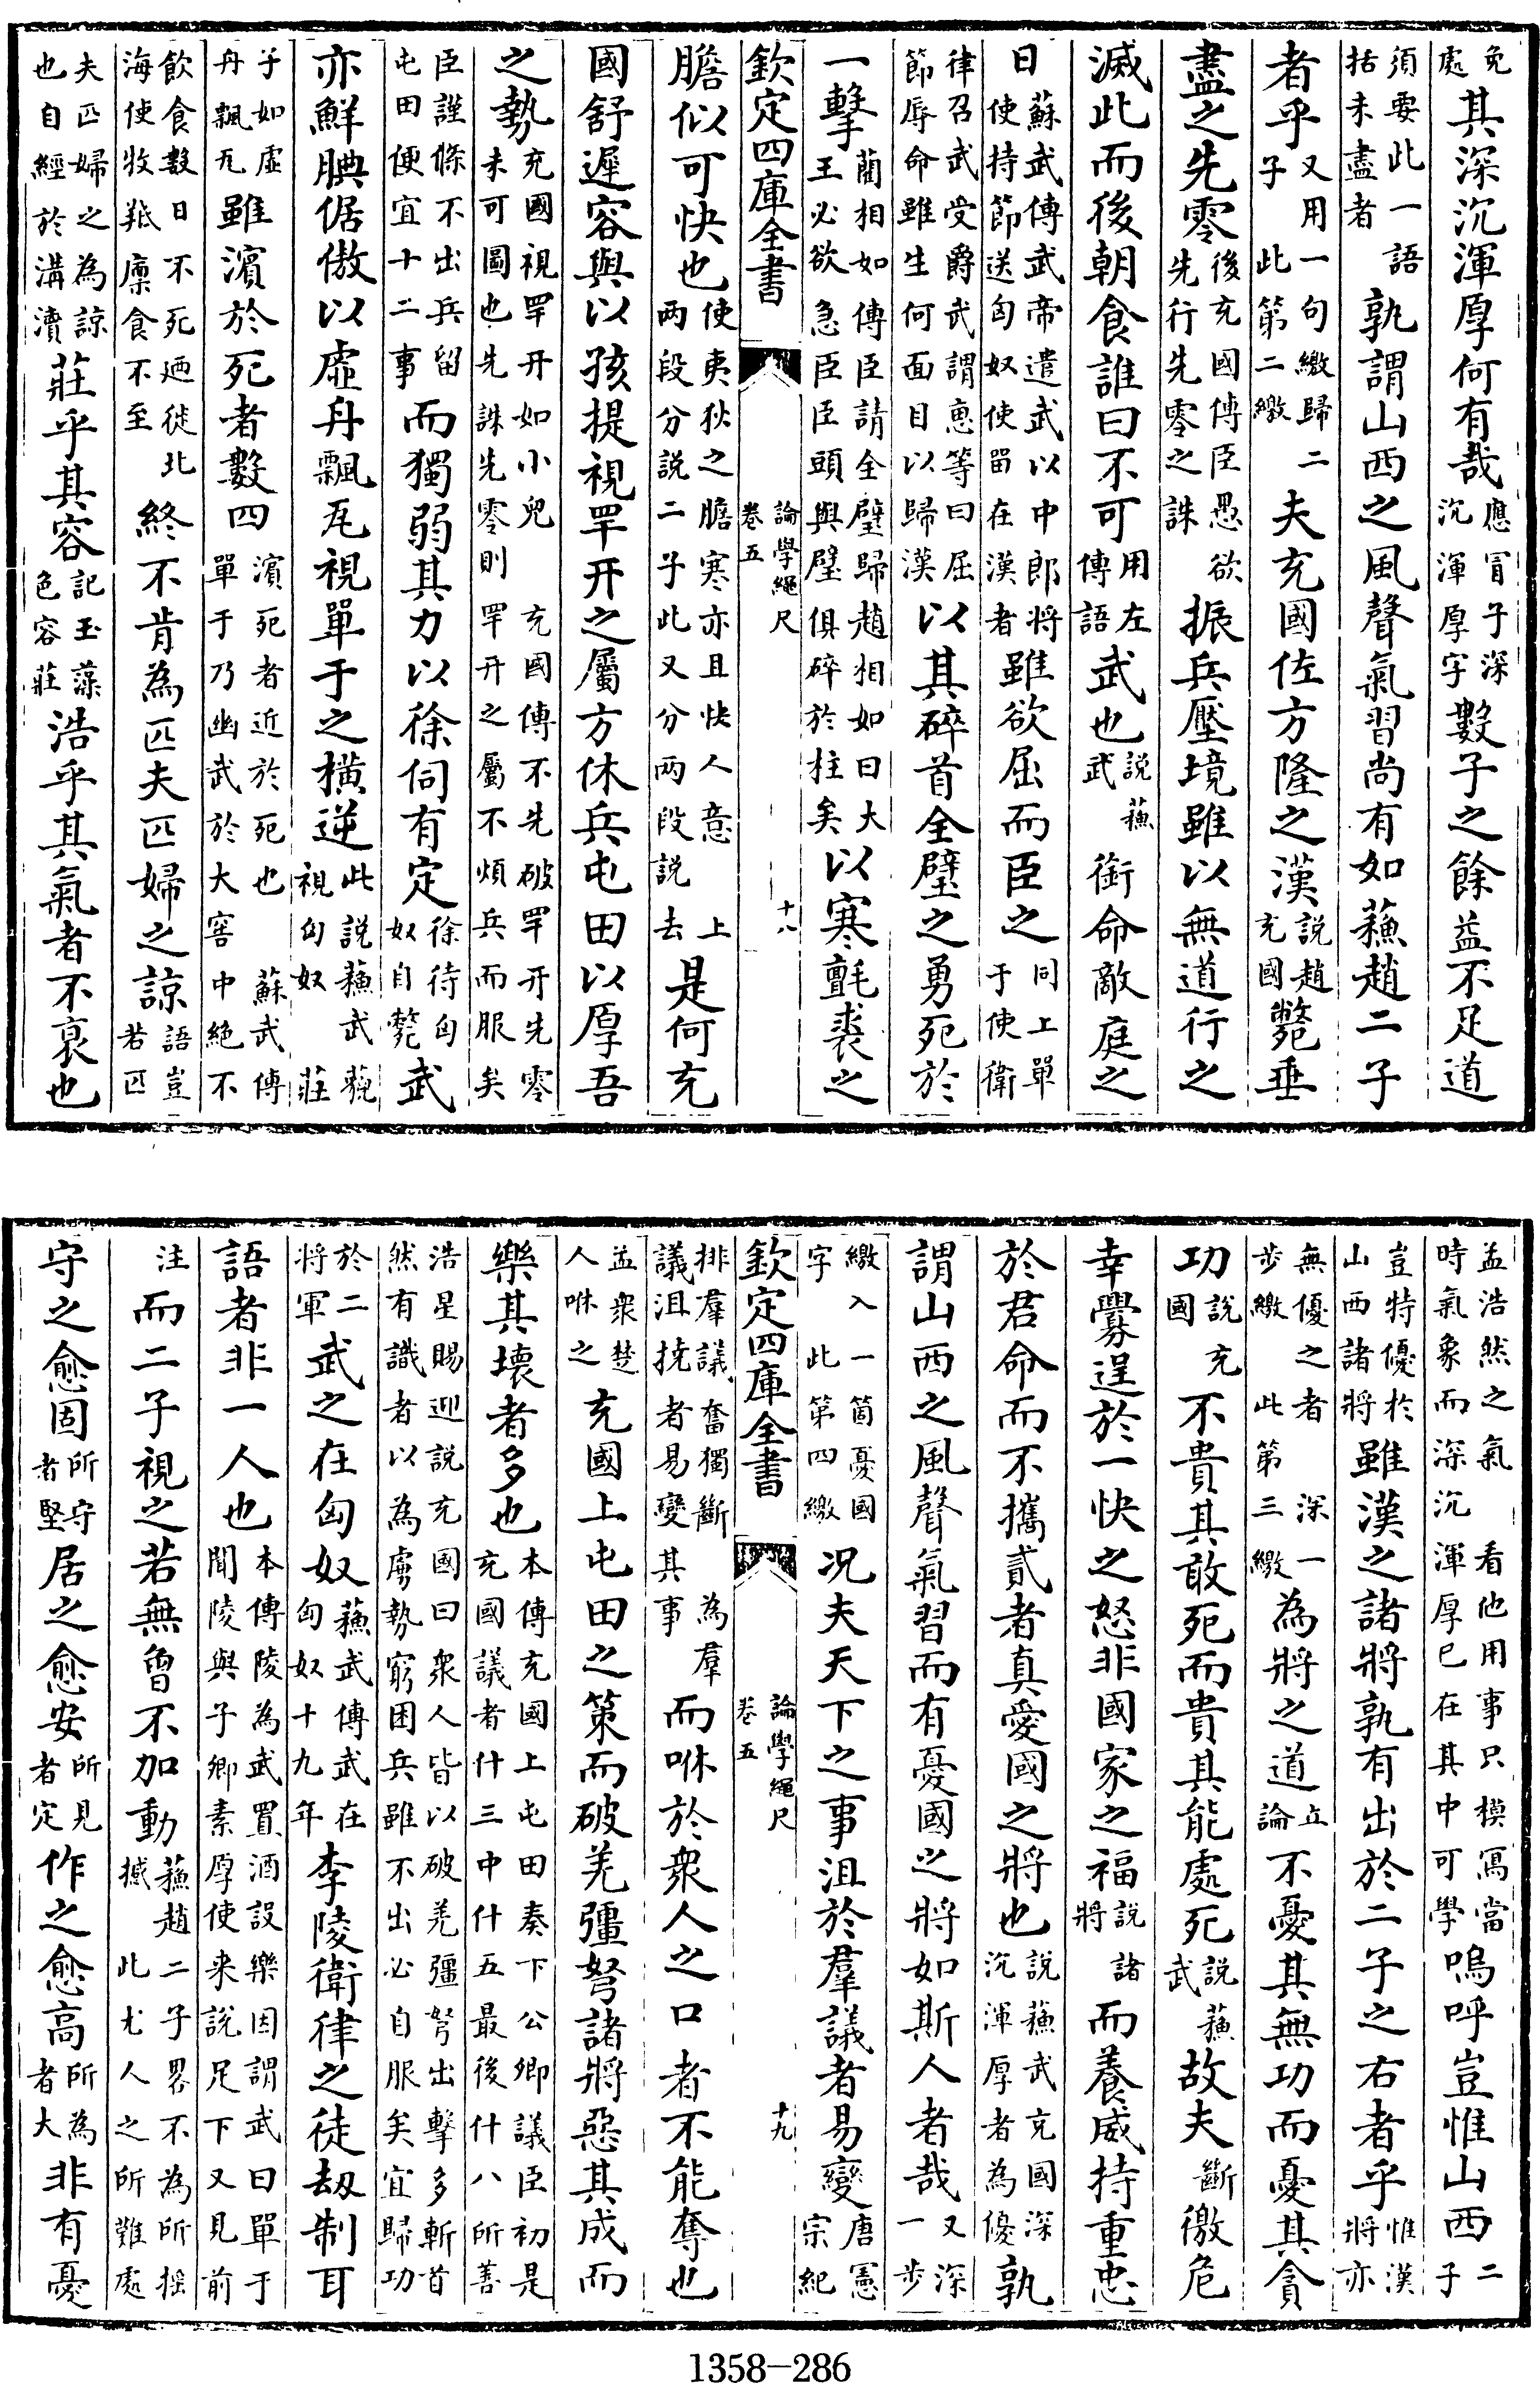 免處其深沉渾厚何有哉應冒子深沉渾厚字數子之餘益不足道
須要此一語括未盡者孰謂山西之風聲氣習尚有如蘓趙二子
者乎又用一句繳歸二子此第二繳夫充國佐方隆之漢說趙充國斃垂
盡之先零後充國傳臣愚欲先行先零之誅振兵壓境雖以無道行之
滅此而後朝食誰曰不可用左傳語武也說蘓武銜命敵庭之
日蘇武傳武帝遣武以中郎將使持節送匈奴使留在漢者雖欲屈而臣之同上單于使衛
律召武受爵武謂惠等曰屈節辱命雖生何面目以歸漢以其碎首全璧之勇死於
一擊藺相如傳臣請全璧歸趙相如曰大王必欲急臣臣頭與璧俱碎於柱矣以寒氊裘之
欽定四庫全書 論學繩尺 卷五 十八
膽似可快也使夷狄之膽寒亦且快人意上两段分説二子此又分两段説去是何充
國舒遲容與以孩提視罕幵之屬方休兵屯田以厚吾
之勢充國視罕幵如小兒未可圖也先誅先零則充國傳不先破罕幵先零罕幵之屬不煩兵而服矣
臣謹條不出兵留屯田便宜十二事而獨弱其力以徐伺有定徐待匈奴自斃武
亦鮮腆倨傲以虛舟飄瓦視單于之橫逆此說蘓武藐視匈奴莊
子如虛舟飄瓦雖濱於死者數四濱死者近於死也蘇武傳單于乃幽武於大窖中絶不
飲食數日不死廼徙北海使牧羝廩食不至終不肯為匹夫匹婦之諒語豈若匹
夫匹婦之為諒也自經於溝瀆莊乎其容記玉藻色容莊浩乎其氣者不衰也
孟浩然之氣看他用事只模寫當時氣象而深沉渾厚已在其中可學嗚呼豈惟山西二子
豈特優於山西諸將雖漢之諸將孰有出於二子之右者乎惟漢將亦
無優之者深一步繳此第三繳為將之道立論不憂其無功而憂其貪
功說充國不貴其敢死而貴其能處死說蘓武故夫斷徼危
幸釁逞於一快之怒非國家之福說諸將而養威持重忠
於君命而不攜貳者真愛國之將也說蘓武充國深沉渾厚者為優孰
謂山西之風聲氣習而有憂國之將如斯人者哉又深一步
繳入一箇憂國字此第四繳况夫天下之事沮於羣議者易變唐憲宗紀
欽定四庫全書 論學繩尺 卷五 十九
排羣議奮獨斷為羣議沮撓者易變其事而咻於衆人之口者不能奪也
孟衆楚人咻之充國上屯田之策而破羌彊弩諸將惡其成而
樂其壞者多也本傳充國上屯田奏下公卿議臣初是充國議者什三中什五最後什八所善
浩星賜迎說充國曰衆人皆以破羌彊弩出擊多斬首然有識者以為虜勢窮困兵雖不出必自服矣宜歸功
於二將軍武之在匈奴蘓武傳武在匈奴十九年李陵衛律之徒刼制耳
語者非一人也本傳陵為武置酒設樂因謂武曰單于聞陵與子卿素厚使来說足下又見前
注而二子視之若無曾不加動蘓趙二子畧不為所搖撼此尤人之所難處
守之愈固所守者堅居之愈安所見者定作之愈高所為者大非有憂
1358-286